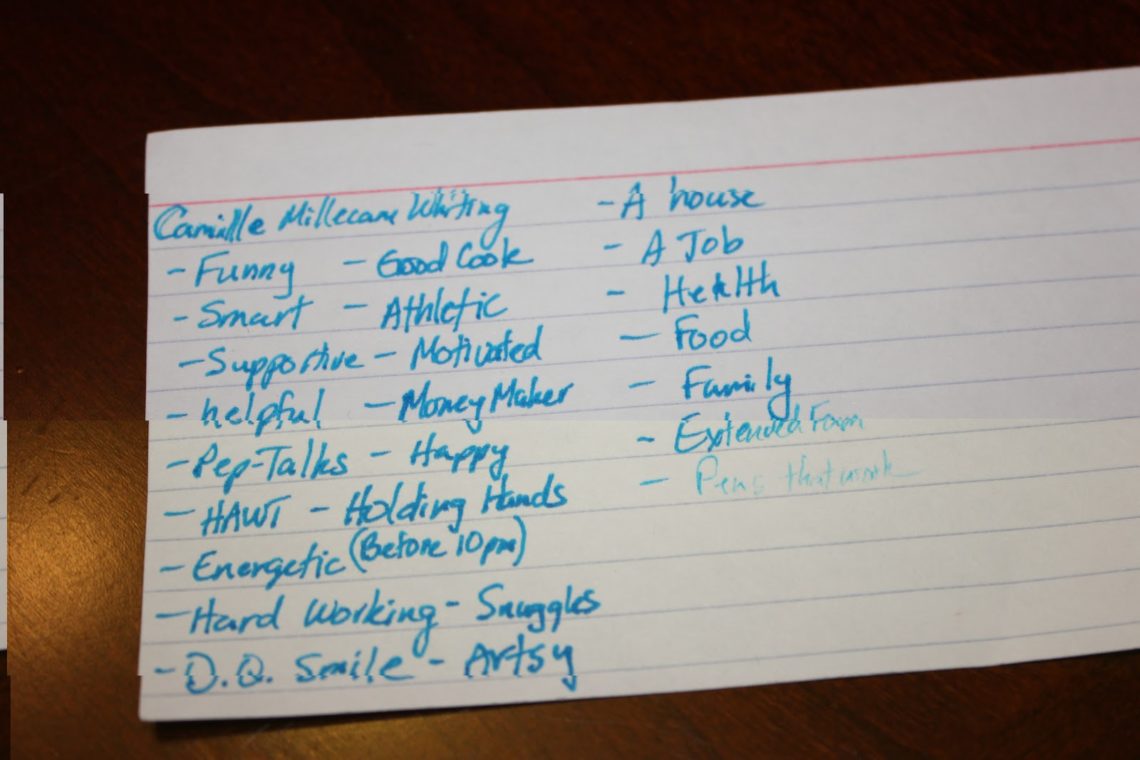 Camille Millecam Whiting
- Funny - Good Cook
- Smart - Athletic
- Supportive - Motivated
- helpful - Money Maker
- Pep-Talks - Happy
- HAWT - Holding Hands
- Energetic (Before 10pm)
- Hard Working - Snuggles
- D.Q. Smile - Artsy
- A house
- A Job
- Health
- Food
- Family
- Extended Fam
- Pens that work